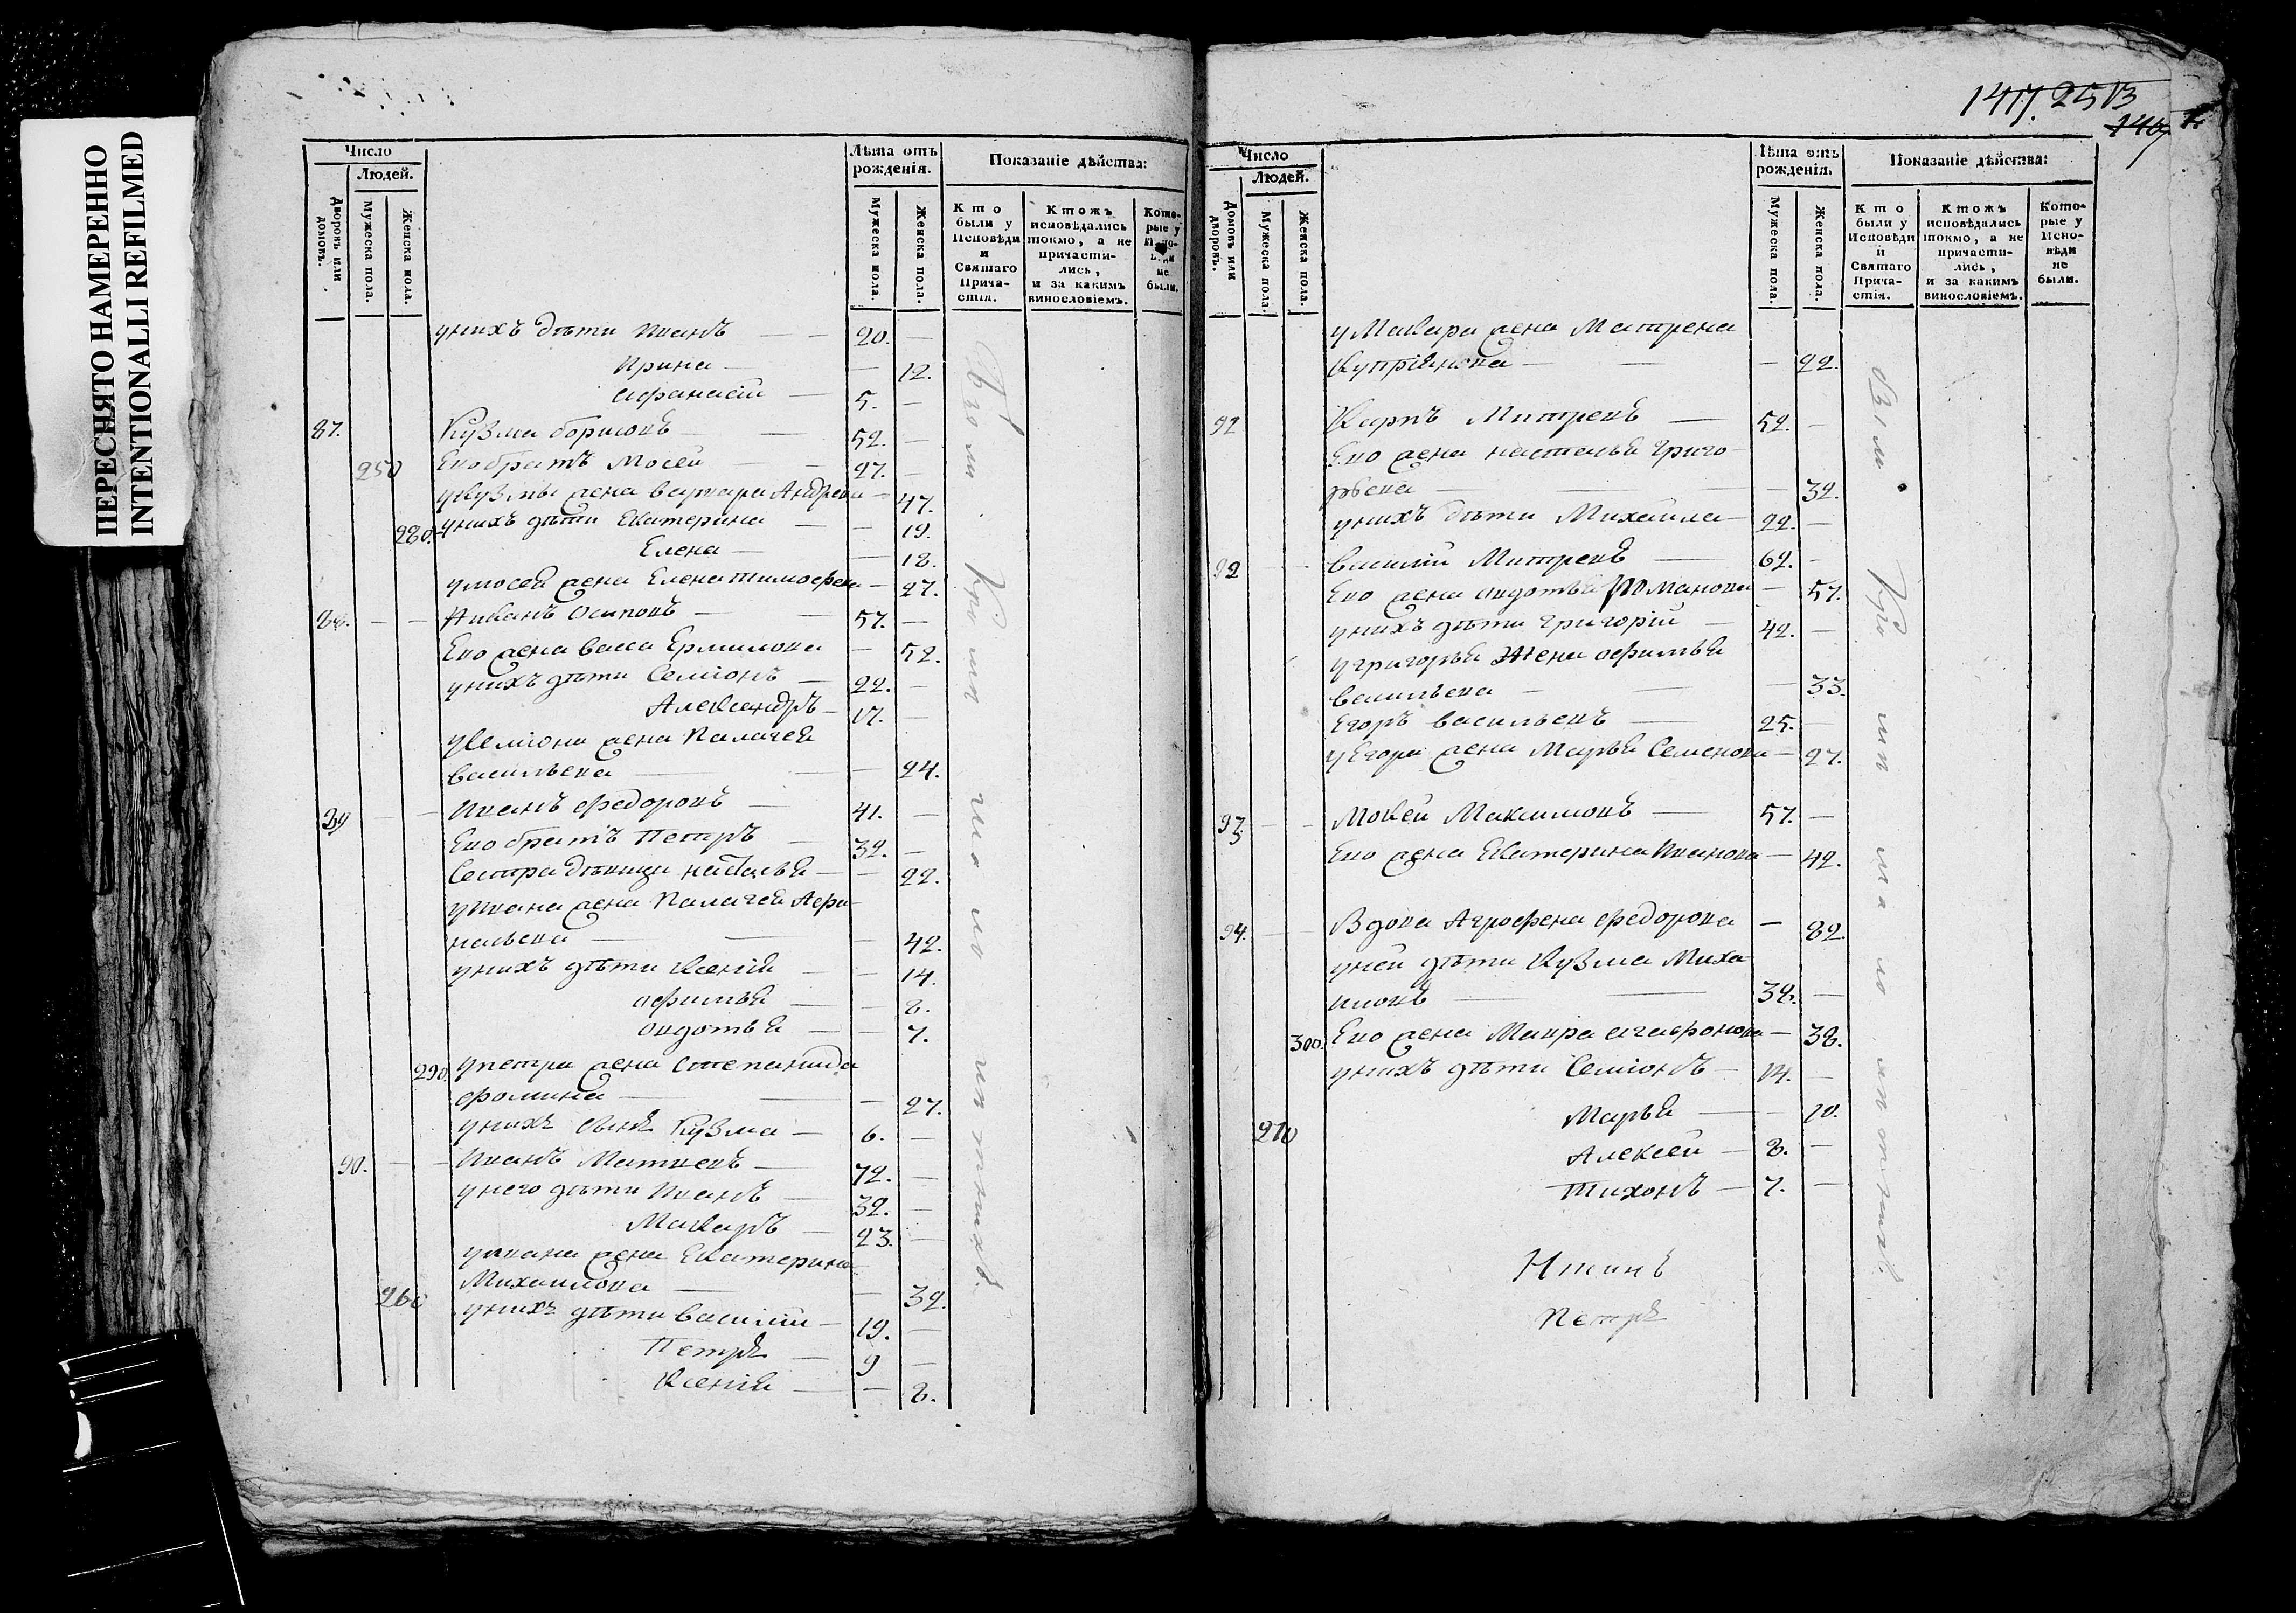 ПЕРЕСНЯТО НАМЕРЕННО
INTENTIONALLI REFILMED
Число
Людей.
Дворовъ или домовъ.
Мужеска пола.
Женска пола.
Лѣта отъ рожденія.
Мужеска пола.
Женска пола.
Показаніе дѣйства:
Кто были у Исповѣди и Святаго Прича-стія.
Ктожъ исповѣдались токмо, а не причасти-лись, и за какимъ винословіемъ.
Кото-рые у Испо-вѣди не были.
у нихъ дѣти Иванъ — 20. —
Ирина — — 12.
Афанасій — 5. —
87. Кузма борисовъ — 52. —
250 Ево братъ Мосей — 27. —
у Кузмы жена варвара Андрева — 47.
280. у нихъ дѣти Екатерина — — 19.
Елена — — 18.
у мосея жена Елена тимофеева — 27.
88. — — Иванъ Осиповъ — 57. —
Ево жена васса Ермилова — 52.
у нихъ дѣти Семіонъ — 22. —
Александръ — 17. —
у Семіона жена Палагея
васильева — — 24.
89 — — Иванъ федоровъ — 41. —
Ево братъ Петръ — 32. —
Сестра дѣвица наталья — — 22.
у Ивана жена Палагея Афа-
насьева — — 42.
у нихъ дѣти Ксенія — — 14.
Афимья — — 8.
Авдотья — — 7.
290. у петра жена степанида
фомина — — 27.
у нихъ сынъ Кузма — 6. —
90. — — Иванъ Матвеевъ — 72. —
у него дѣти Иванъ — 32. —
Макаръ — 23. —
у ивана жена Екатерина
Михаилова — — 32.
260 у нихъ дѣти василій — 19. —
Петръ — 9 —
Ксенія — — 8.
147. 25 13
146
Число
Людей.
Домовъ или дворовъ.
Мужеска пола.
Женска пола.
Лѣта отъ рожденія.
Мужеска пола.
Женска пола.
Показаніе дѣйства:
Кто были у Исповѣди и Святаго Прича-стія.
Ктожъ исповѣдались токмо, а не причасти-лись, и за какимъ винословіемъ.
Кото-рые у Испо-вѣди не были.
у Макара жена Матрена
Купріянова — — 22.
92 Карпъ Митревъ — 52. —
Ево жена настасья Григо-
рьева — — 32.
у нихъ дѣти Михайла — 22. —
92 — — василій Митревъ — 62. —
Ево жена Авдотья Романова — 57.
у нихъ дѣти Григорій — 42. —
у григорья Жена Афимья
васильева — — 33.
Егоръ васильевъ — 25. —
у Егора жена Марья Семенова — 27.
93. — — Мокей Максимовъ — 57. —
Ево жена Екатерина Иванова — 42.
94. — — Вдова Агрофена федорова — 82.
у ней дѣти Кузма Миха-
иловъ — 38. —
300. Ево жена Мавра Агафонова — 38.
у нихъ дѣти Семіонъ — 14. —
Марья — — 10.
270 Алексей — 8. —
Тихонъ — 7. —
Петръ